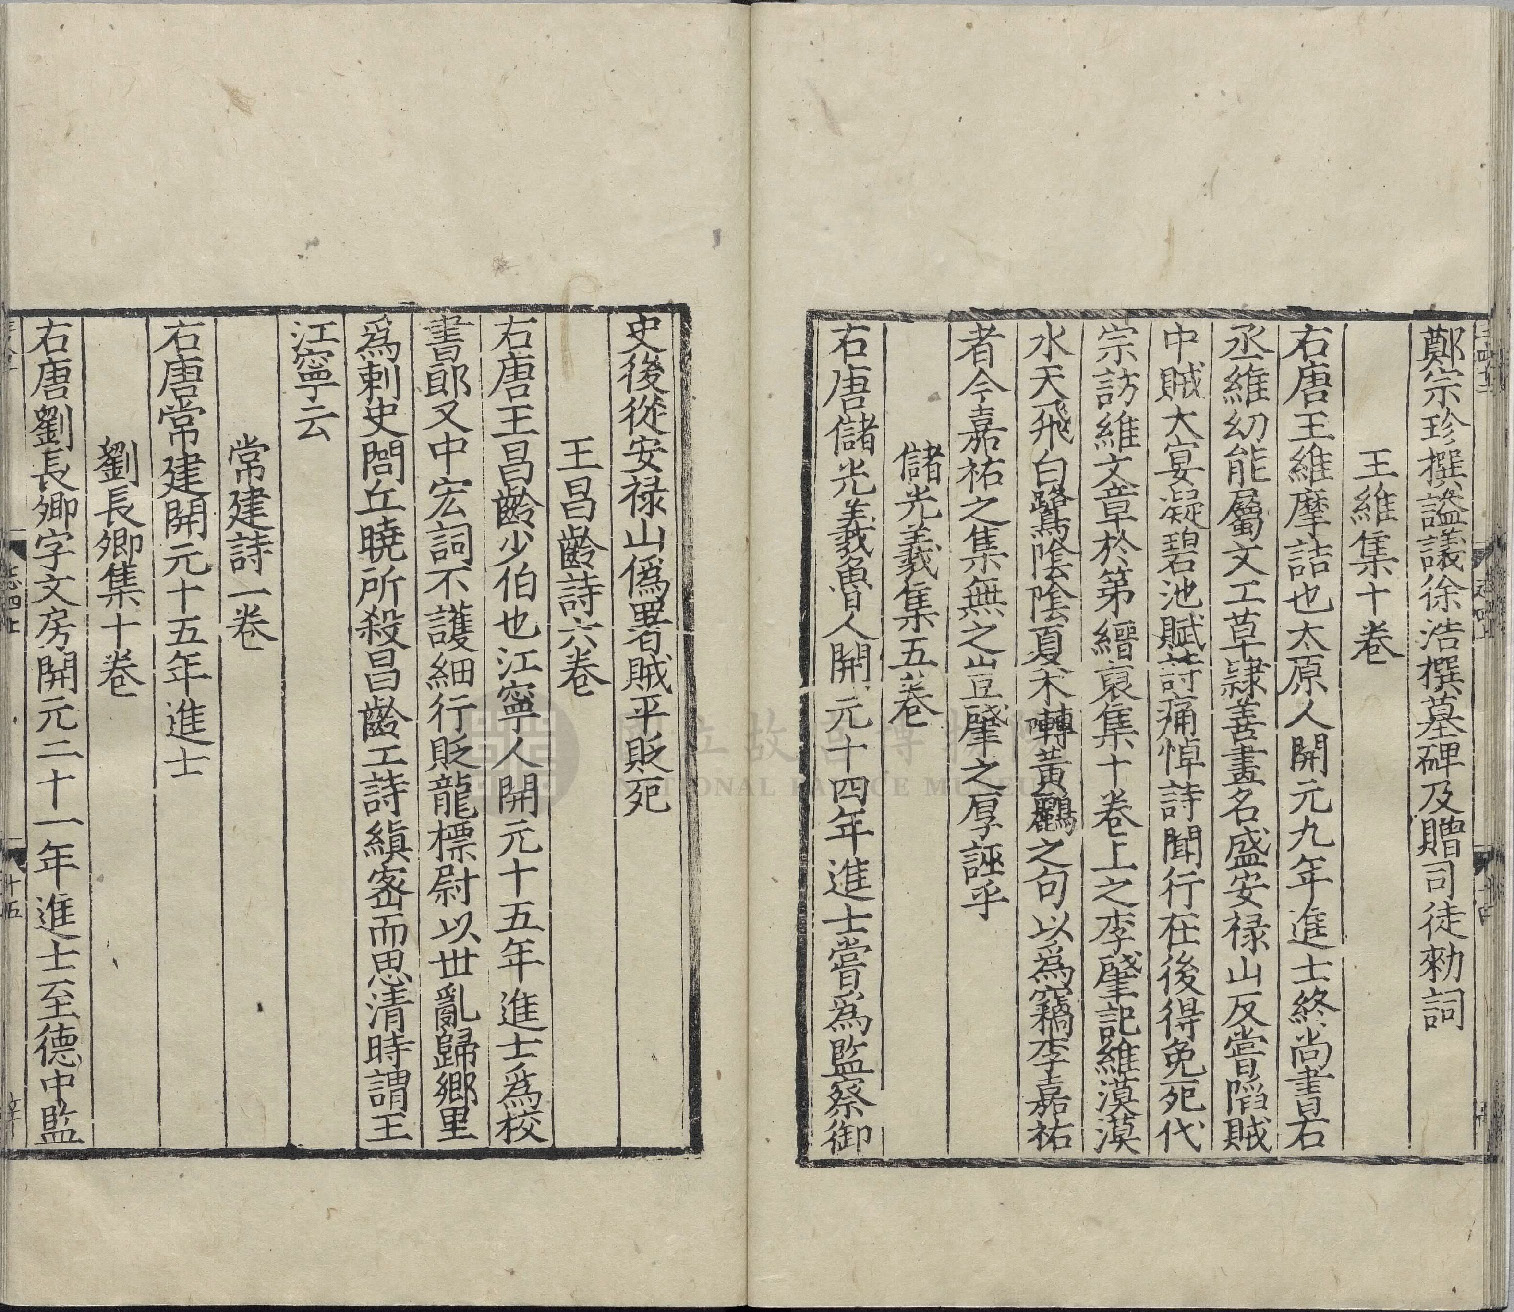 鄭宗珍撰謚議徐浩撰墓碑及贈司徒勑詞
王維集十卷
右唐王維摩詰也太原人開元九年進士終尚書右
丞維幼能屬文工草隸善畫名盛安禄山反嘗陷賊
中賊大宴凝碧池賦詩痛悼詩聞行在後得免死代
宗訪維文章於第縉裒集十卷上之李肇記維漠漠
水天飛白鷺陰陰夏木囀黃鸝之句以爲竊李嘉祐
者今嘉祐之集無之豈肇之厚誣乎
儲光羲集五卷
右唐儲光羲魯人開元十四年進士嘗爲監察御
史後從安禄山僞署賊平貶死
王昌齡詩六卷
右唐王昌齡少伯也江寧人開元十五年進士爲校
書郎又中宏詞不護細行貶龍標尉以世亂歸鄉里
爲刺史閭丘曉所殺昌齡工詩縝密而思清時謂王
江寧云
常建詩一卷
右唐常建開元十五年進士
劉長卿集十卷
右唐劉長卿字文房開元二十一年進士至德中監
志四上
十五
國立故宮博物院
NATIONAL PALACE MUSEUM